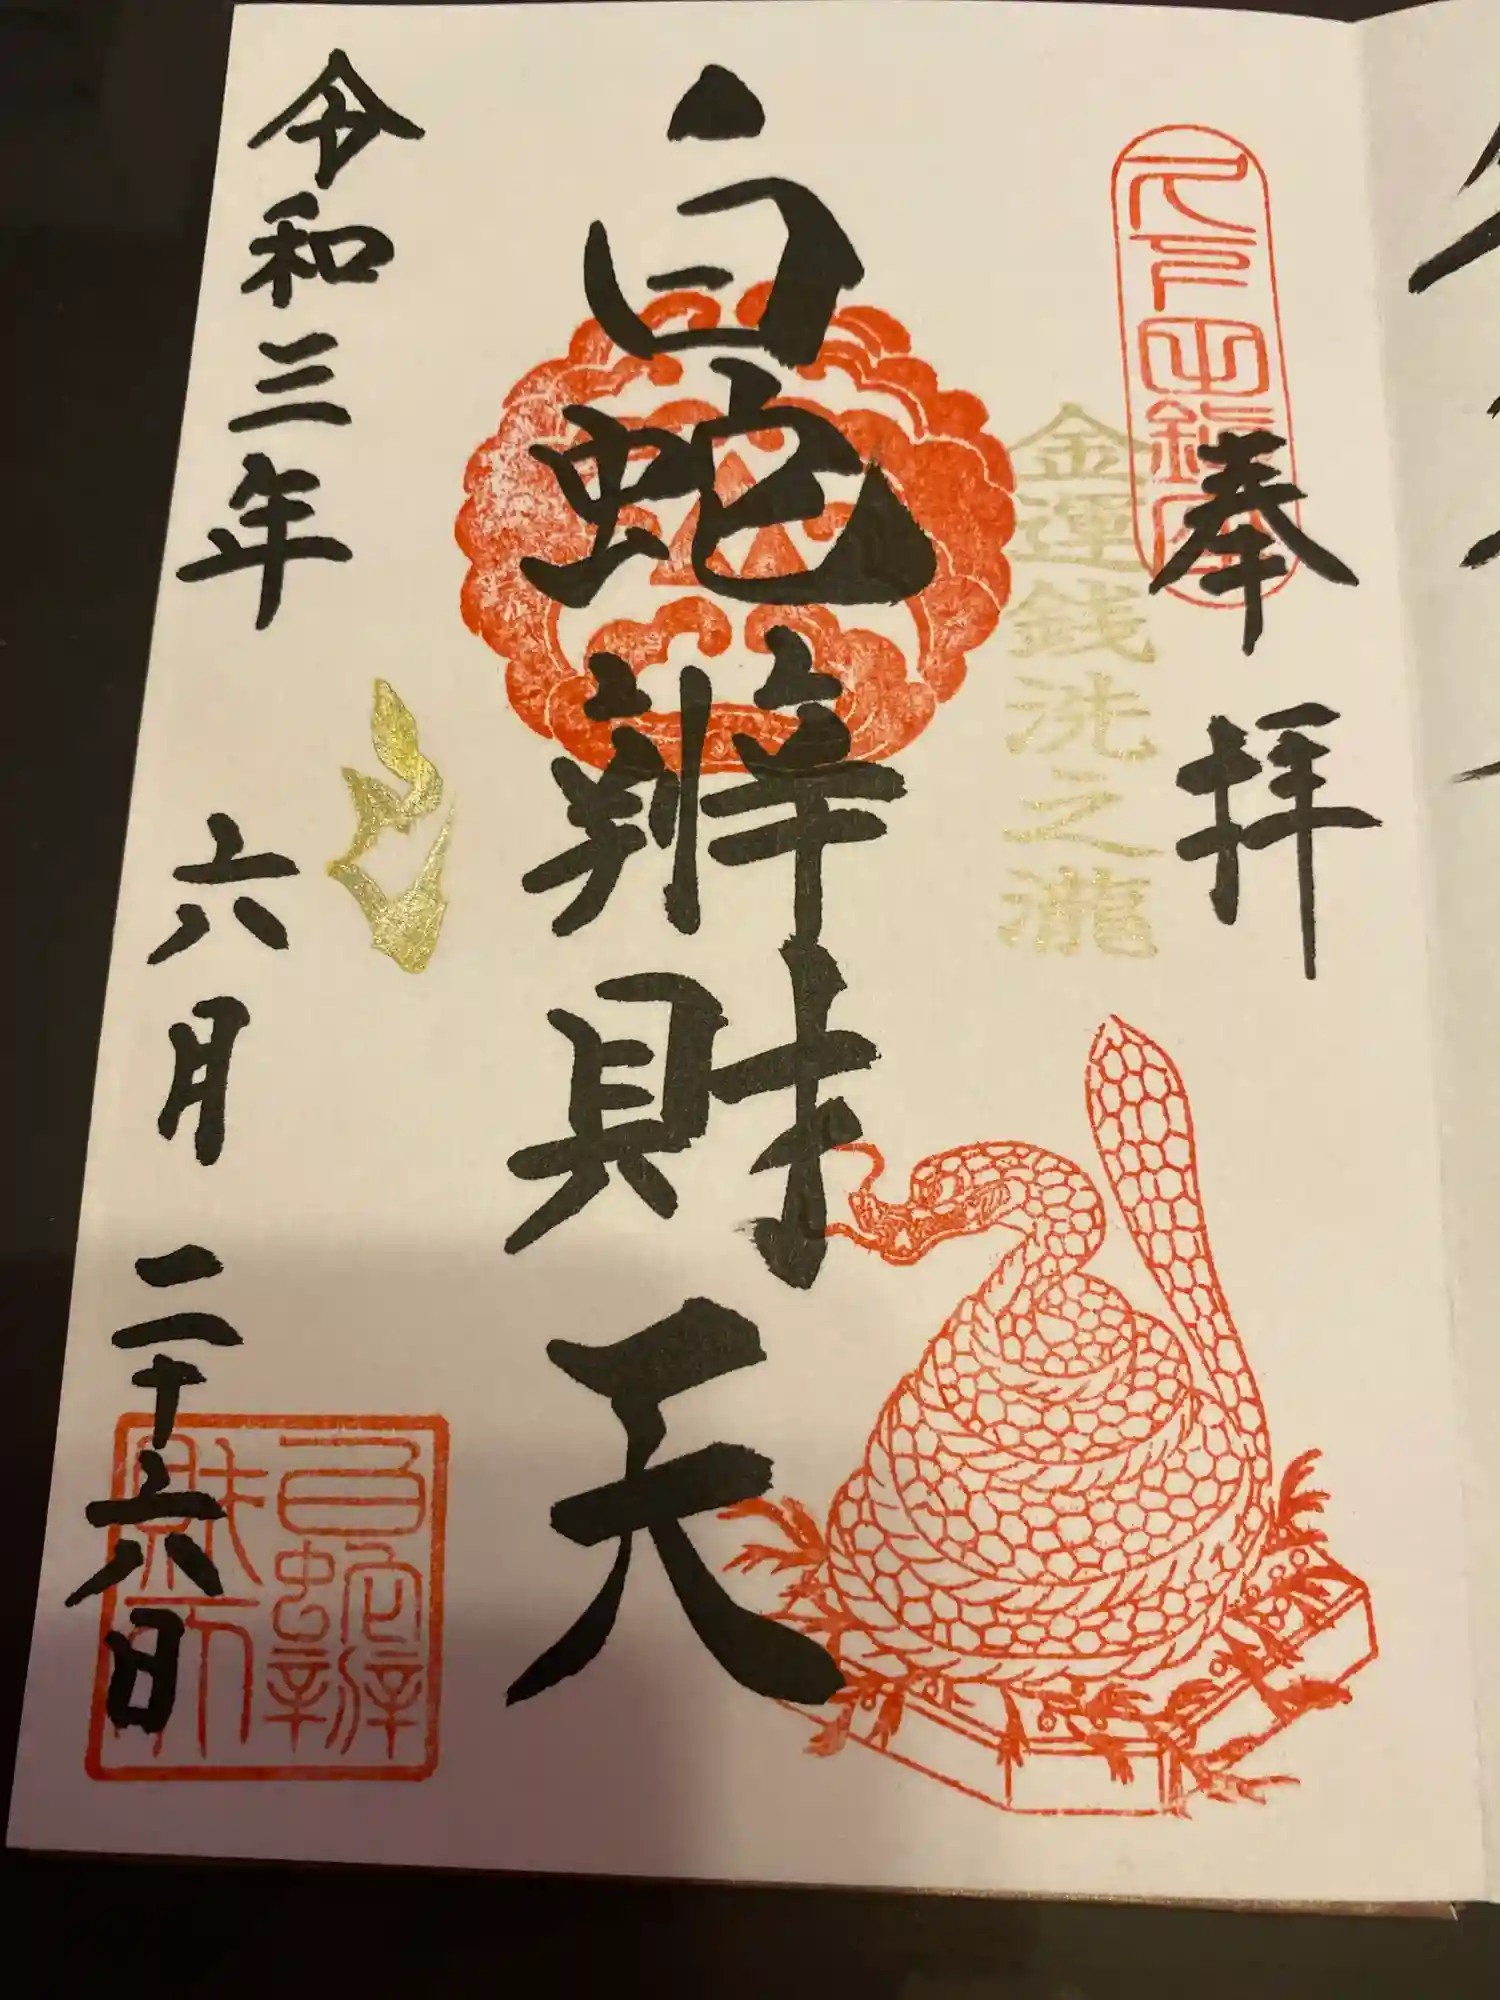 奉拝
金運銭洗之瀧
白蛇辨財天
令和三年 六月 二十六日
白蛇辨
財天